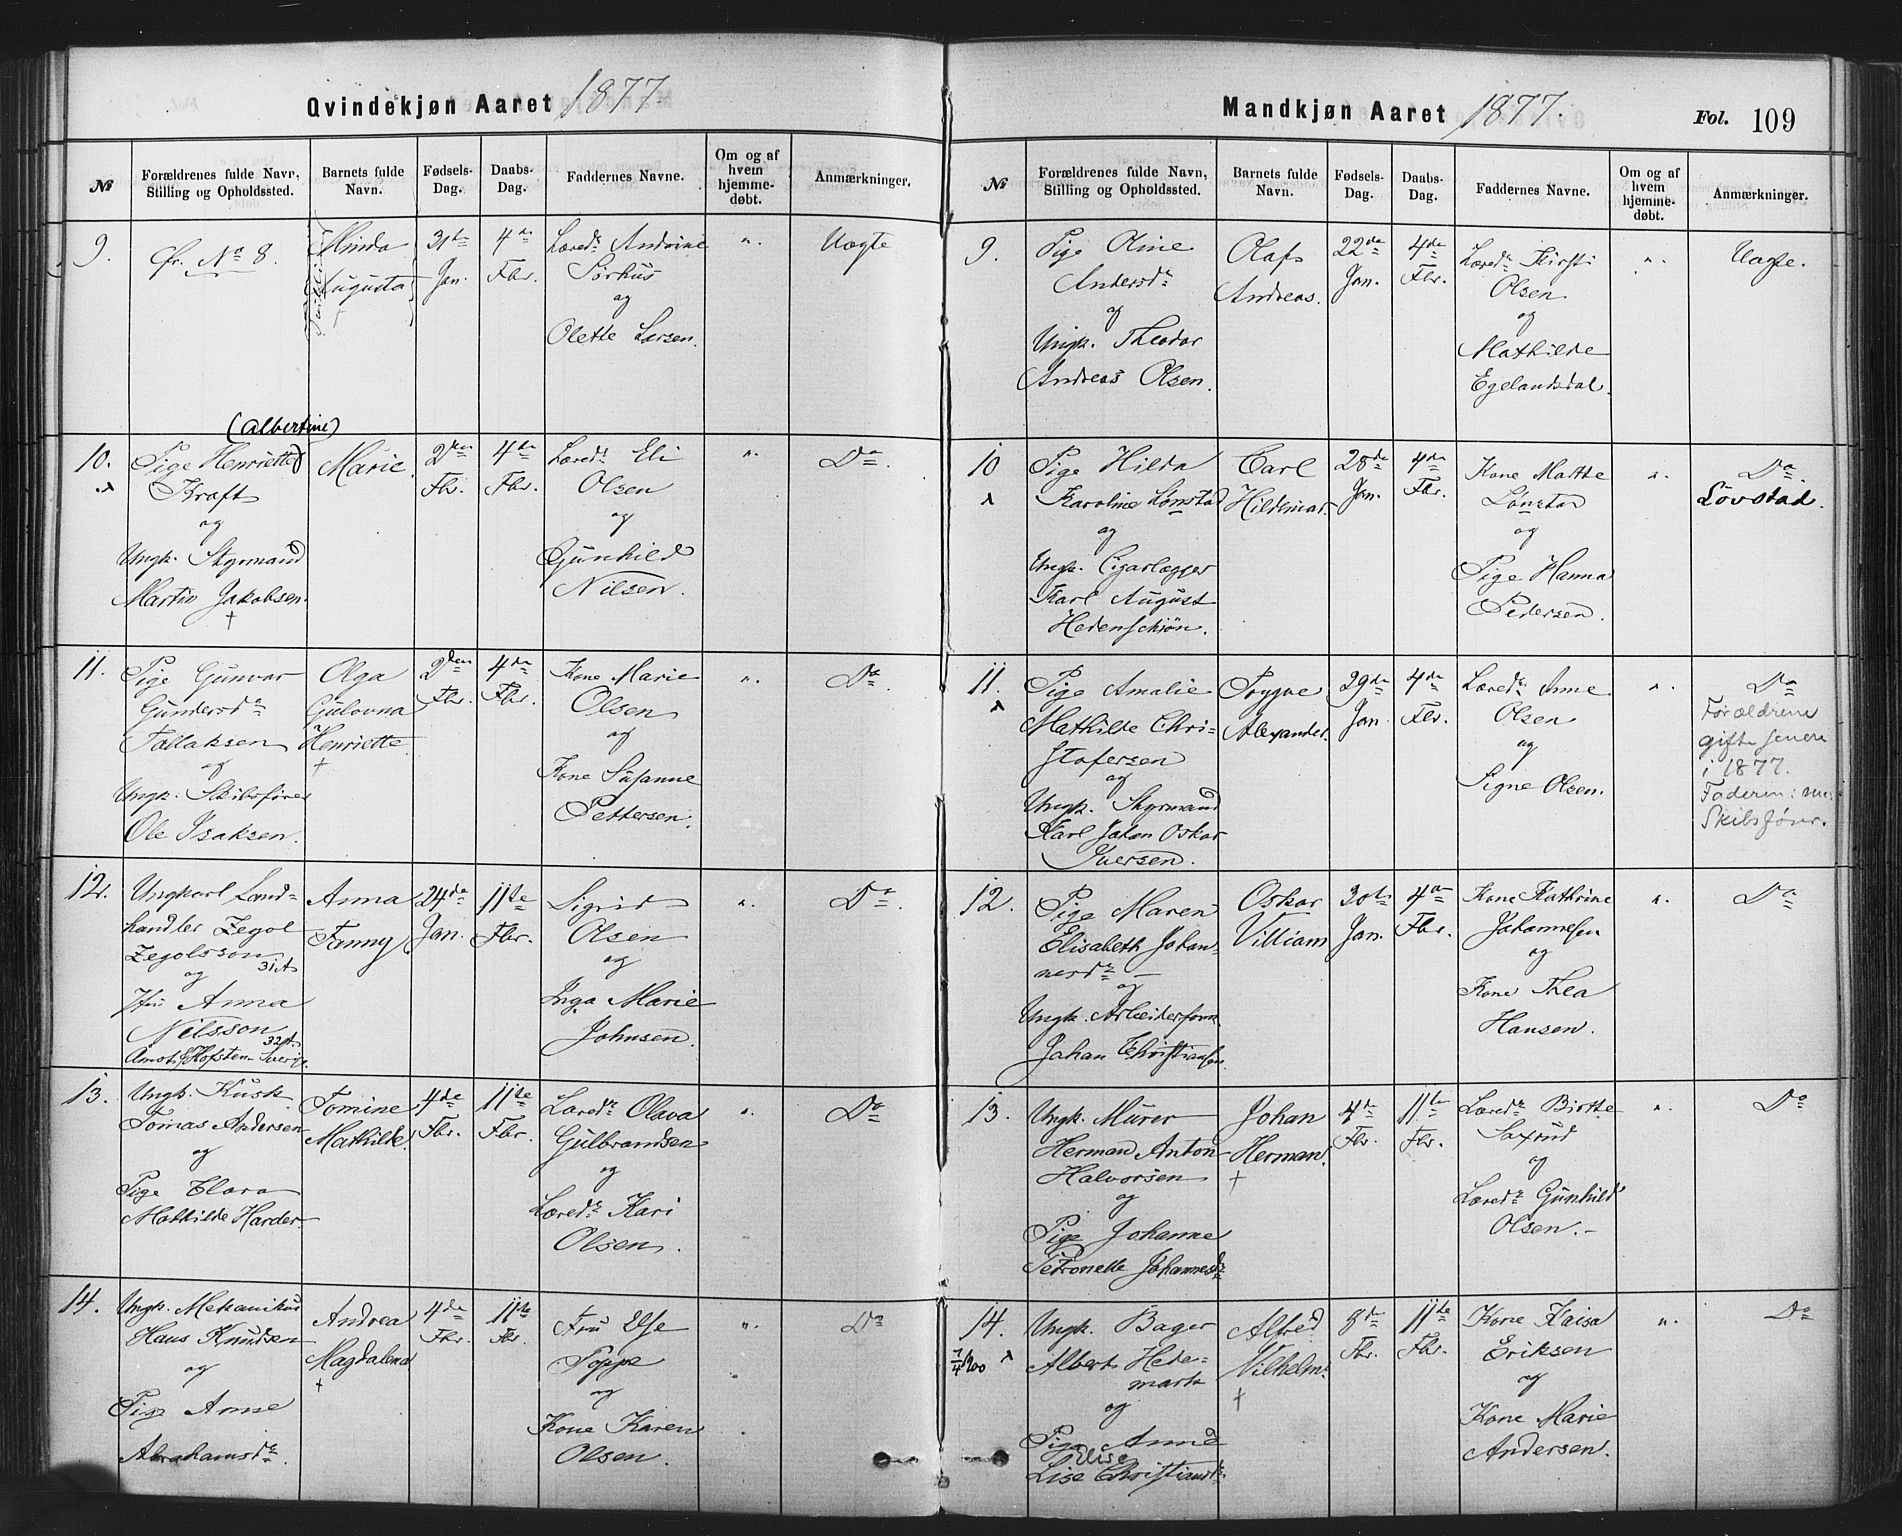 Qvindekjøn Aaret 1877
№
Forældrenes fulde Navn,
Stilling og Opholdssted.
Barnets fulde
Navn.
Fødsels-
Dag.
Daabs-
Dag.
Faddernes Navne.
Om og af
hvem
hjemme-
døbt.
Anmærkninger.
9.
Fr. No 8.
Minda
Augusta
31te
Jan.
4de
Fbr.
Læred: Andrine
Sørhus
og
Olette Larsen.
".
Uægte
10.
(Albertine)
Pige Henriette
Kraft
og
Ungk. Styrmand
Martin Jakobsen.
Marie.
2den
Fbr.
4de
Fbr.
Læred: Eli
Olsen
og
Gunhild
Nilsen.
".
Do.
11.
Pige Gunvor
Gundersdr
Tallaksen
og
Ungk. Skibsfører
Ole Isaksen.
Olga
Gulovna
Henriette.
2den
Fbr.
4de
Fbr.
Kone Marie
Olsen
og
Kone Susanne
Pettersen.
".
Do.
12.
Ungkarl Land-
handler Zegol
Zegolsson
31 A
og
Anna
Nilsson
32 A
Amots Hofsten Sverige
Anna
Fanny
24de
Jan.
11te
Fbr.
Sigrid
Olsen
og
Inga Marie
Johnsen.
".
Do.
13.
Ungk. Kusk
Tomas Andersen
og
Pige Clara
Mathilde Harder
Tomine
Mathilde.
4de
Fbr.
11te
Fbr.
Læred: Olava
Gulbrandsen
og
Læred: Kari
Olsen.
".
Do
14.
Ungk. Mekanikus
Hans Knudsen
og
Pige Anne
Abrahamsdr.
Andrea
Magdalena
4de
Fbr.
11te
Fbr.
Fru Else
Poppe
og
Kone Karen
Olsen.
".
Do
Mandkjøn Aaret 1877.
Fol. 109
№
Forældrenes fulde Navn,
Stilling og Opholdssted.
Barnets fulde
Navn.
Fødsels-
Dag.
Daabs-
Dag.
Faddernes Navne.
Om og af
hvem
hjemme-
døbt.
Anmærkninger.
9.
Pige Oline
Andersdr
og
Ungk. Theodor
Andreas Olsen.
Olaf
Andreas.
22de
Jan.
4de
Fbr.
Læred: Kirsti
Olsen
og
Mathilde
Egelandsdal.
".
Uægte.
10
Pige Hilda
Karoline Lønstad
og
Ungk. Cigarlægger
Karl August
Hedenschiön.
Carl
Hildemar.
28de
Jan.
4de
Fbr.
Kone Marthe
Lønstad
og
Pige Hanna
Pedersen.
".
Do.
Lövstad.
11.
Pige Amalie
Mathilde Chri-
stofersen
og
Ungk. Styrmand
Karl Johan Oskar
Iversen.
Trygve
Alexander.
29de
Jan.
4de
Fbr.
Læred: Anne
Olsen
og
Signe Olsen.
".
Do
Forældrene
gift senere
i 1877.
Faderen: nu
Skibsfører.
12.
Pige Maren
Elisabeth Johan-
nesdr —
og
Ungk. Arbeidsform.
Johan Christiansen
Oskar
Villiam
30te
Jan.
4de
Fbr.
Kone Kathrine
Johannesen
og
Kone Thea
Hansen.
".
Do
13.
Ungk. Murer
Herman Anton
Halvorsen
og
Pige Johanne
Petronelle Johannesdr
Johan
Herman.
4de
Fbr.
11te
Fbr.
Læred: Birthe
Saxrud
og
Læred: Gunhild
Olsen.-
".
Do
14.
7/4 1900
Ungk. Bager
Albert Hede-
mark
og
Pige Anne
Elise
Lise Christiansdr.
Alfred
Vilhelm.
8de
Fbr.
11te
Fbr.
Kone Kaisa
Eriksen
og
Kone Marie
Andersen.
".
Do